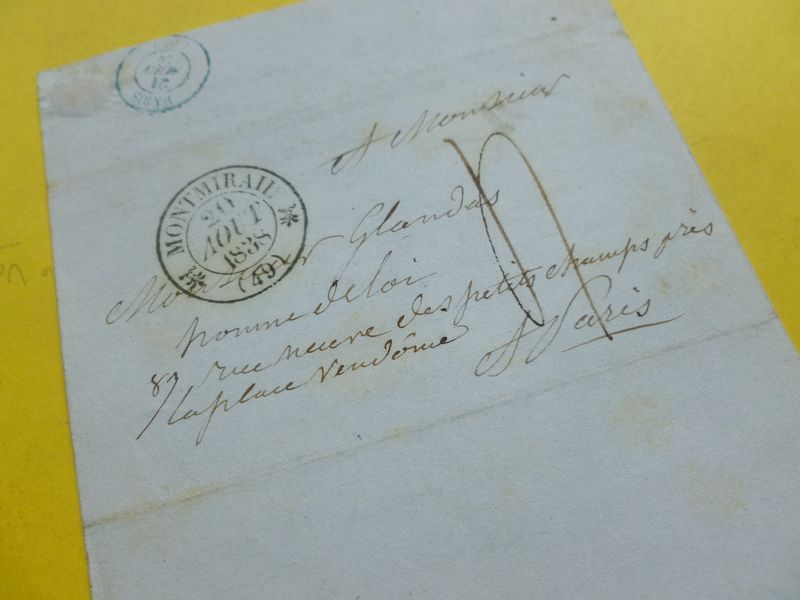 PARIS
MONTMIRAIL
20
AOUT
1838
(49)
A Monsieur
Monsieur Glandas
homme de loi
87 rue neuve des petits champs près
la place Vendôme
A Paris